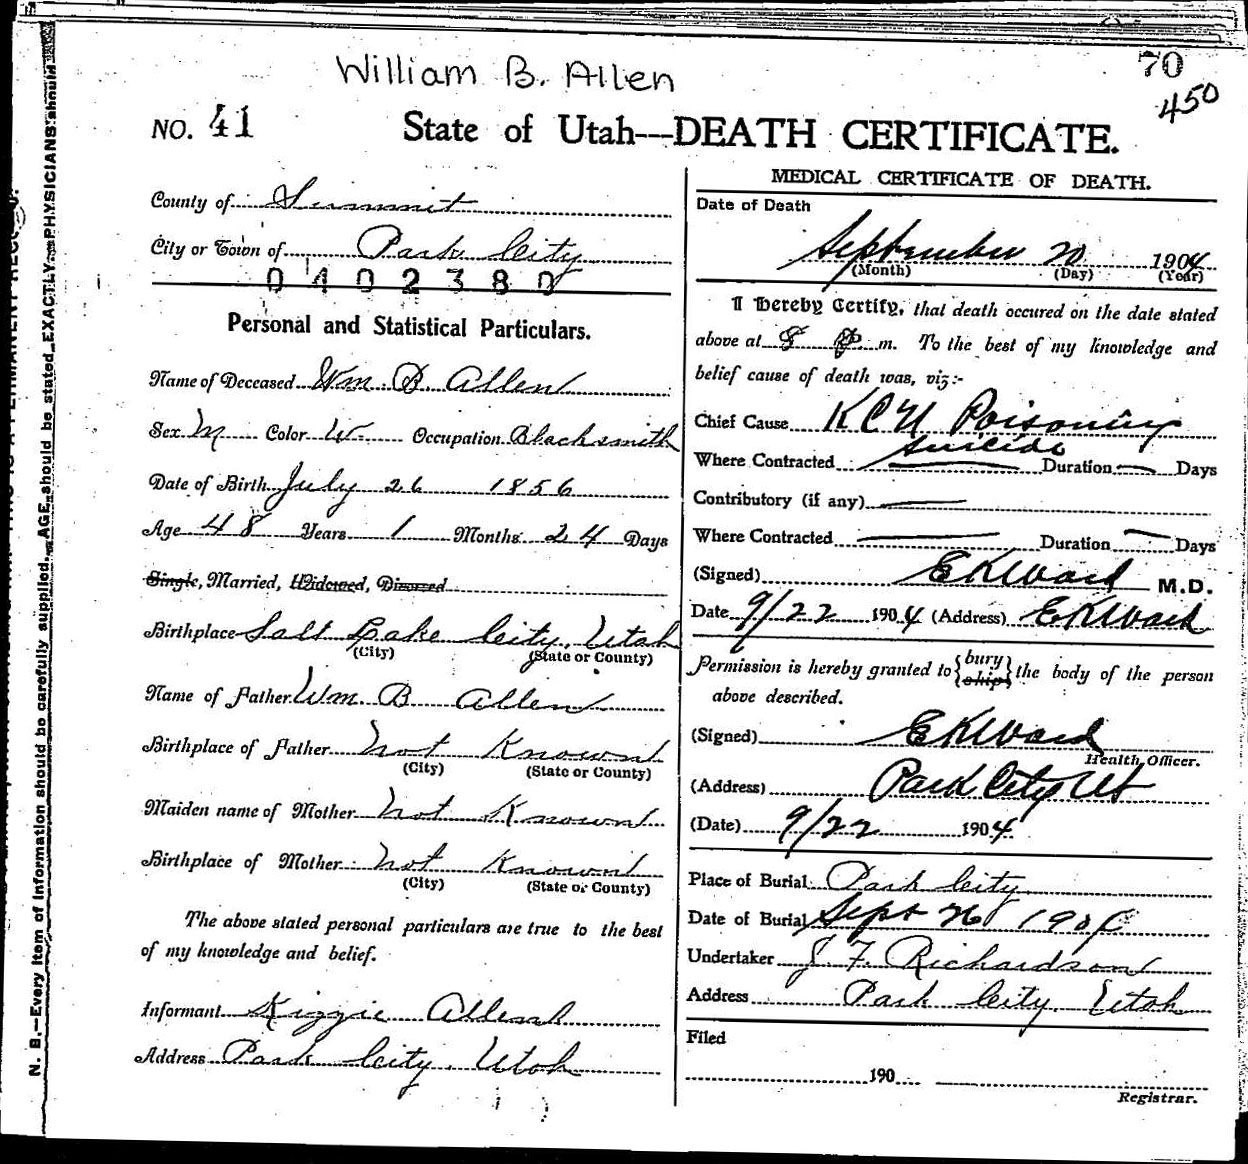 William B. Allen
70
450
NO. 41 State of Utah---DEATH CERTIFICATE.
County of Summit
City or Town of Park City
0402380
Personal and Statistical Particulars.
Name of Deceased Wm. B. Allen
Sex M Color W. Occupation Blacksmith
Date of Birth July 26 1856
Age 48 Years 1 Months 24 Days
Single, Married, Widowed, Divorced
Birthplace Salt Lake City, Utah
(City) (State or County)
Name of Father Wm. B Allen
Birthplace of Father not Known
(City) (State or County)
Maiden name of Mother not Known
Birthplace of Mother not Known
(City) (State or County)
The above stated personal particulars are true to the best
of my knowledge and belief.
Informant Kizzie Allen
Address Park City, Utah
MEDICAL CERTIFICATE OF DEATH.
Date of Death
September 20 1904
(Month) (Day) (Year)
I Hereby Certify, that death occured on the date stated
above at 8 P. m. To the best of my knowledge and
belief cause of death was, viz:-
Chief Cause KCN Poisoning
suicide
Where Contracted Duration Days
Contributory (if any)
Where Contracted Duration Days
(Signed) EKWard M.D.
Date 9/22 1904 (Address) EKWard
Permission is hereby granted to {bury
ship} the body of the person
above described.
(Signed) EKWard
Health Officer.
(Address) Park City Ut
(Date) 9/22 1904
Place of Burial Park City
Date of Burial Sept 26 1904
Undertaker J. F. Richardson
Address Park City, Utah
Filed
190
Registrar.
N. B.—Every item of information should be carefully supplied. AGE should be stated EXACTLY. PHYSICIANS should